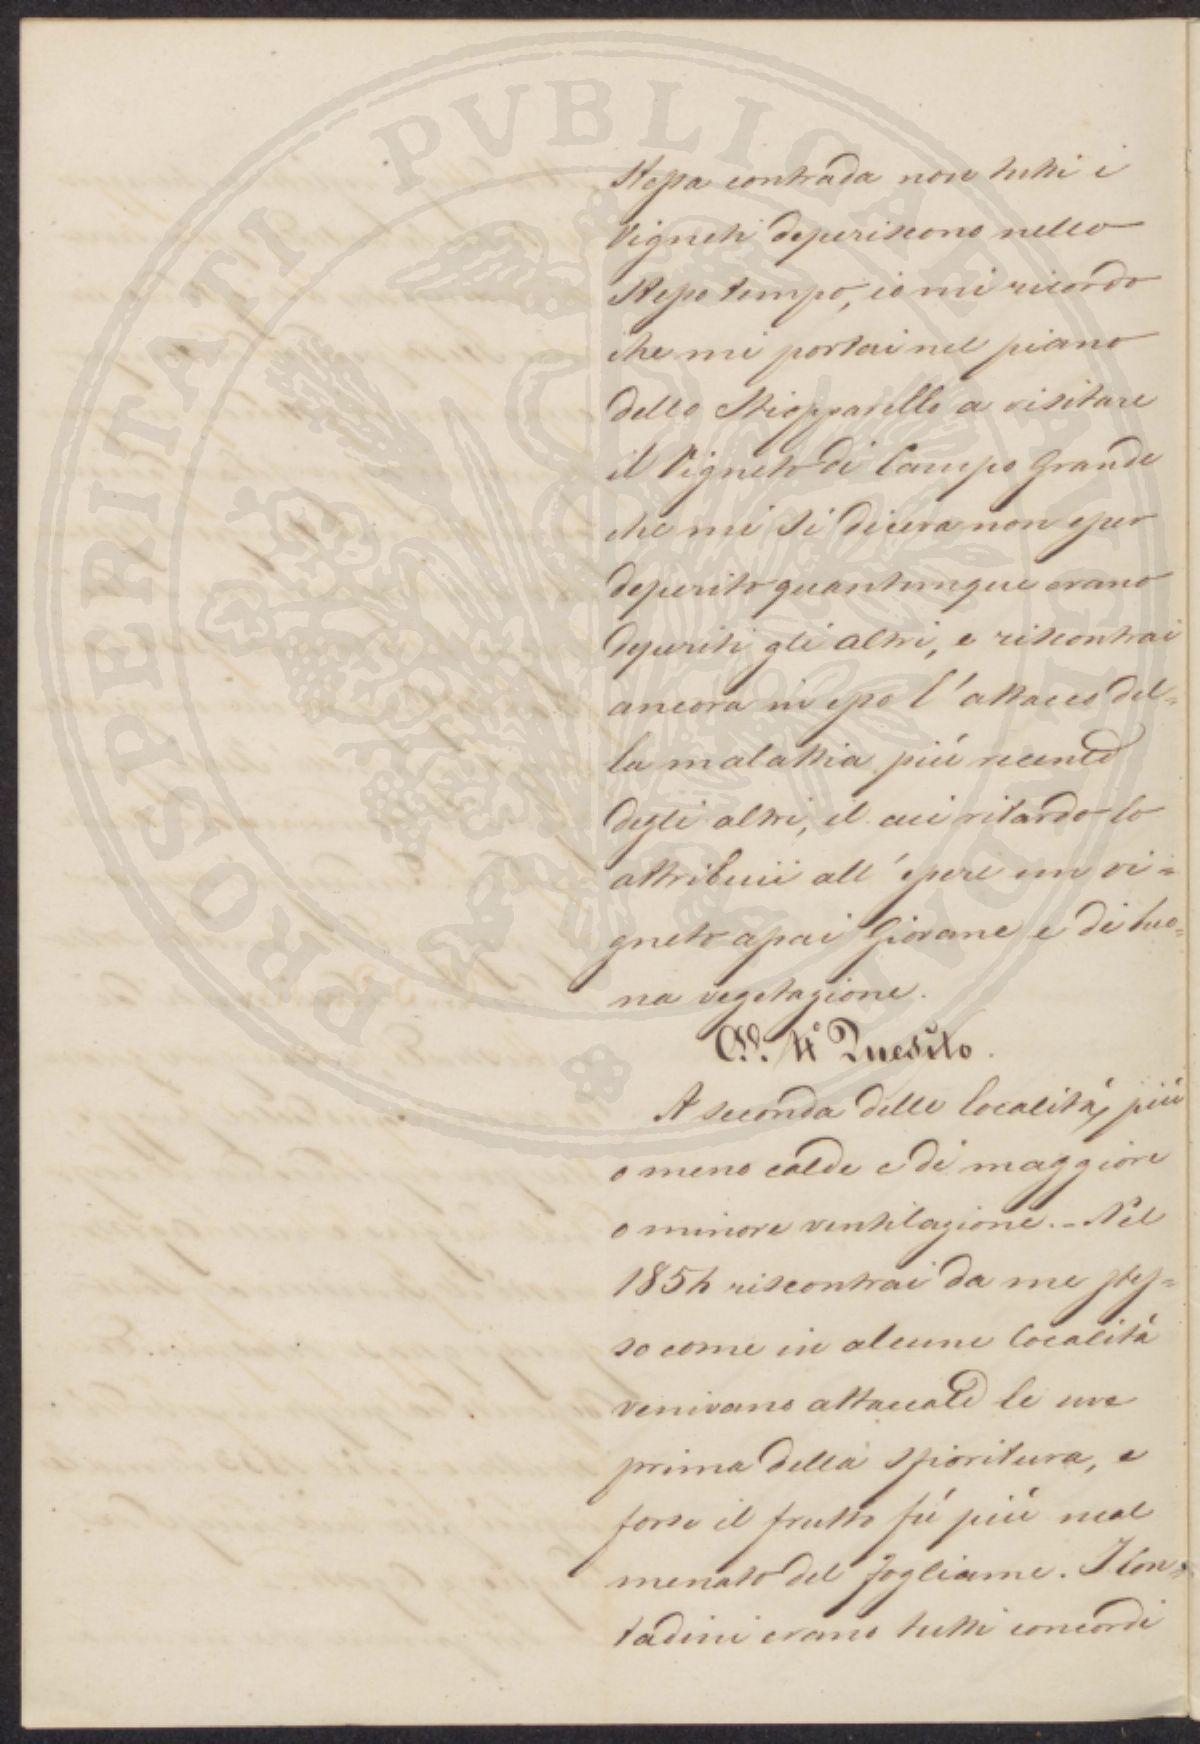 PROSPERITATI PVBLICAE AVGENDAE
stessa contrada non tutti i
Vigneti deperiscono nello
stesso tempo, io mi ricordo
che mi portai nel piano
dello Stiopparello a visitare
il Vigneto di Campo Grande
che mi si diceva non esser
deperito quantunque erano
deperiti gli altri, e riscontrai
ancora in esso l'attacco del=
la malattia più recente
degli altri, il cui ritardo lo
attribuii all'essere un vi=
gneto assai Giovane e di buo=
na vegetazione.
Al 4° Quesito.
A seconda delle località, più
o meno calde e di maggiore
o minore ventilazione. - Nel
1854 riscontrai da me stes=
so come in alcune località
venivano attaccate le uve
prima della sfioritura, e
forse il frutto fù più mal
menato del fogliame. I Con=
tadini erano tutti concordi